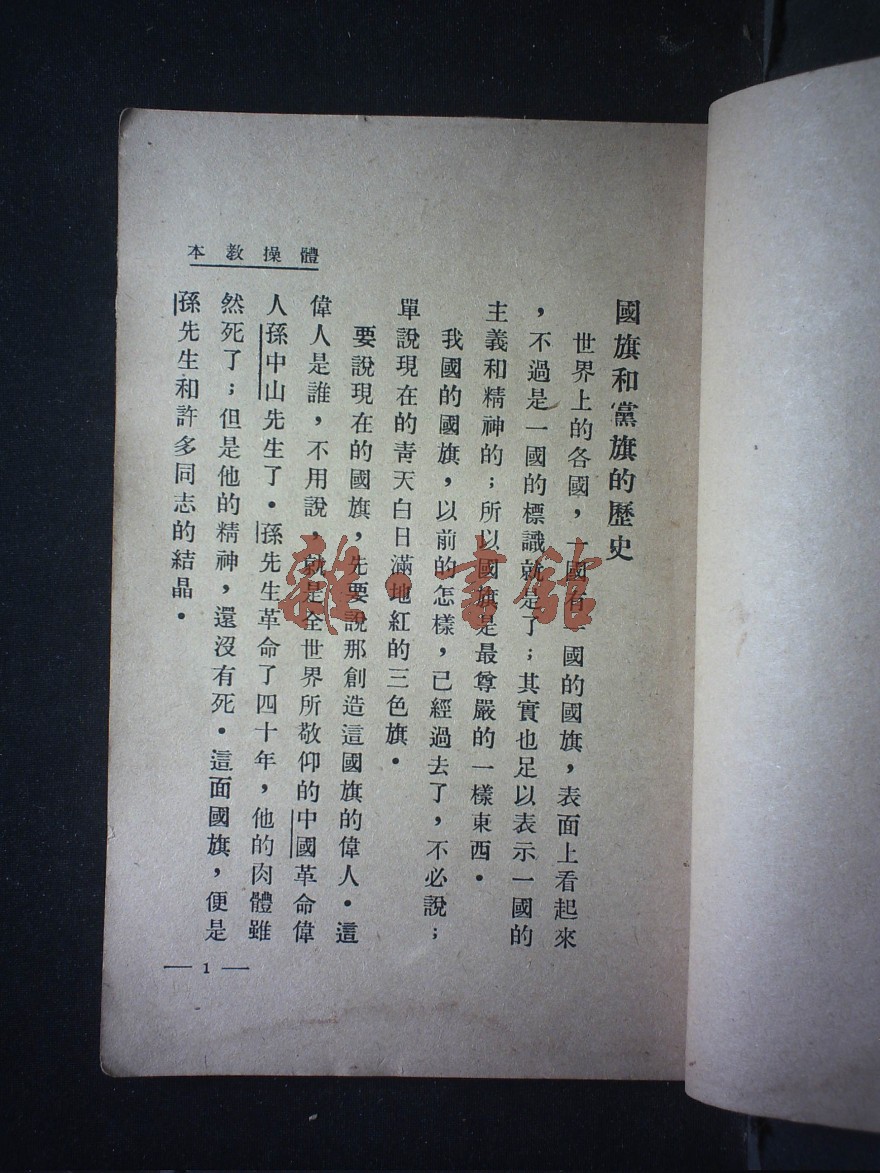 體操教本
國旗和黨旗的歷史
世界上的各國，一國有一國的國旗，表面上看起來
，不過是一國的標識就是了；其實也足以表示一國的
主義和精神的；所以國旗是最尊嚴的一樣東西．
我國的國旗，以前的怎樣，已經過去了，不必說；
單說現在的靑天白日滿地紅的三色旗．
要說現在的國旗，先要說那創造這國旗的偉人．這
偉人是誰，不用說，就是全世界所敬仰的中國革命偉
人孫中山先生了．孫先生革命了四十年，他的肉體雖
然死了；但是他的精神，還沒有死．這面國旗，便是
孫先生和許多同志的結晶．
— 1 —
雜·書館